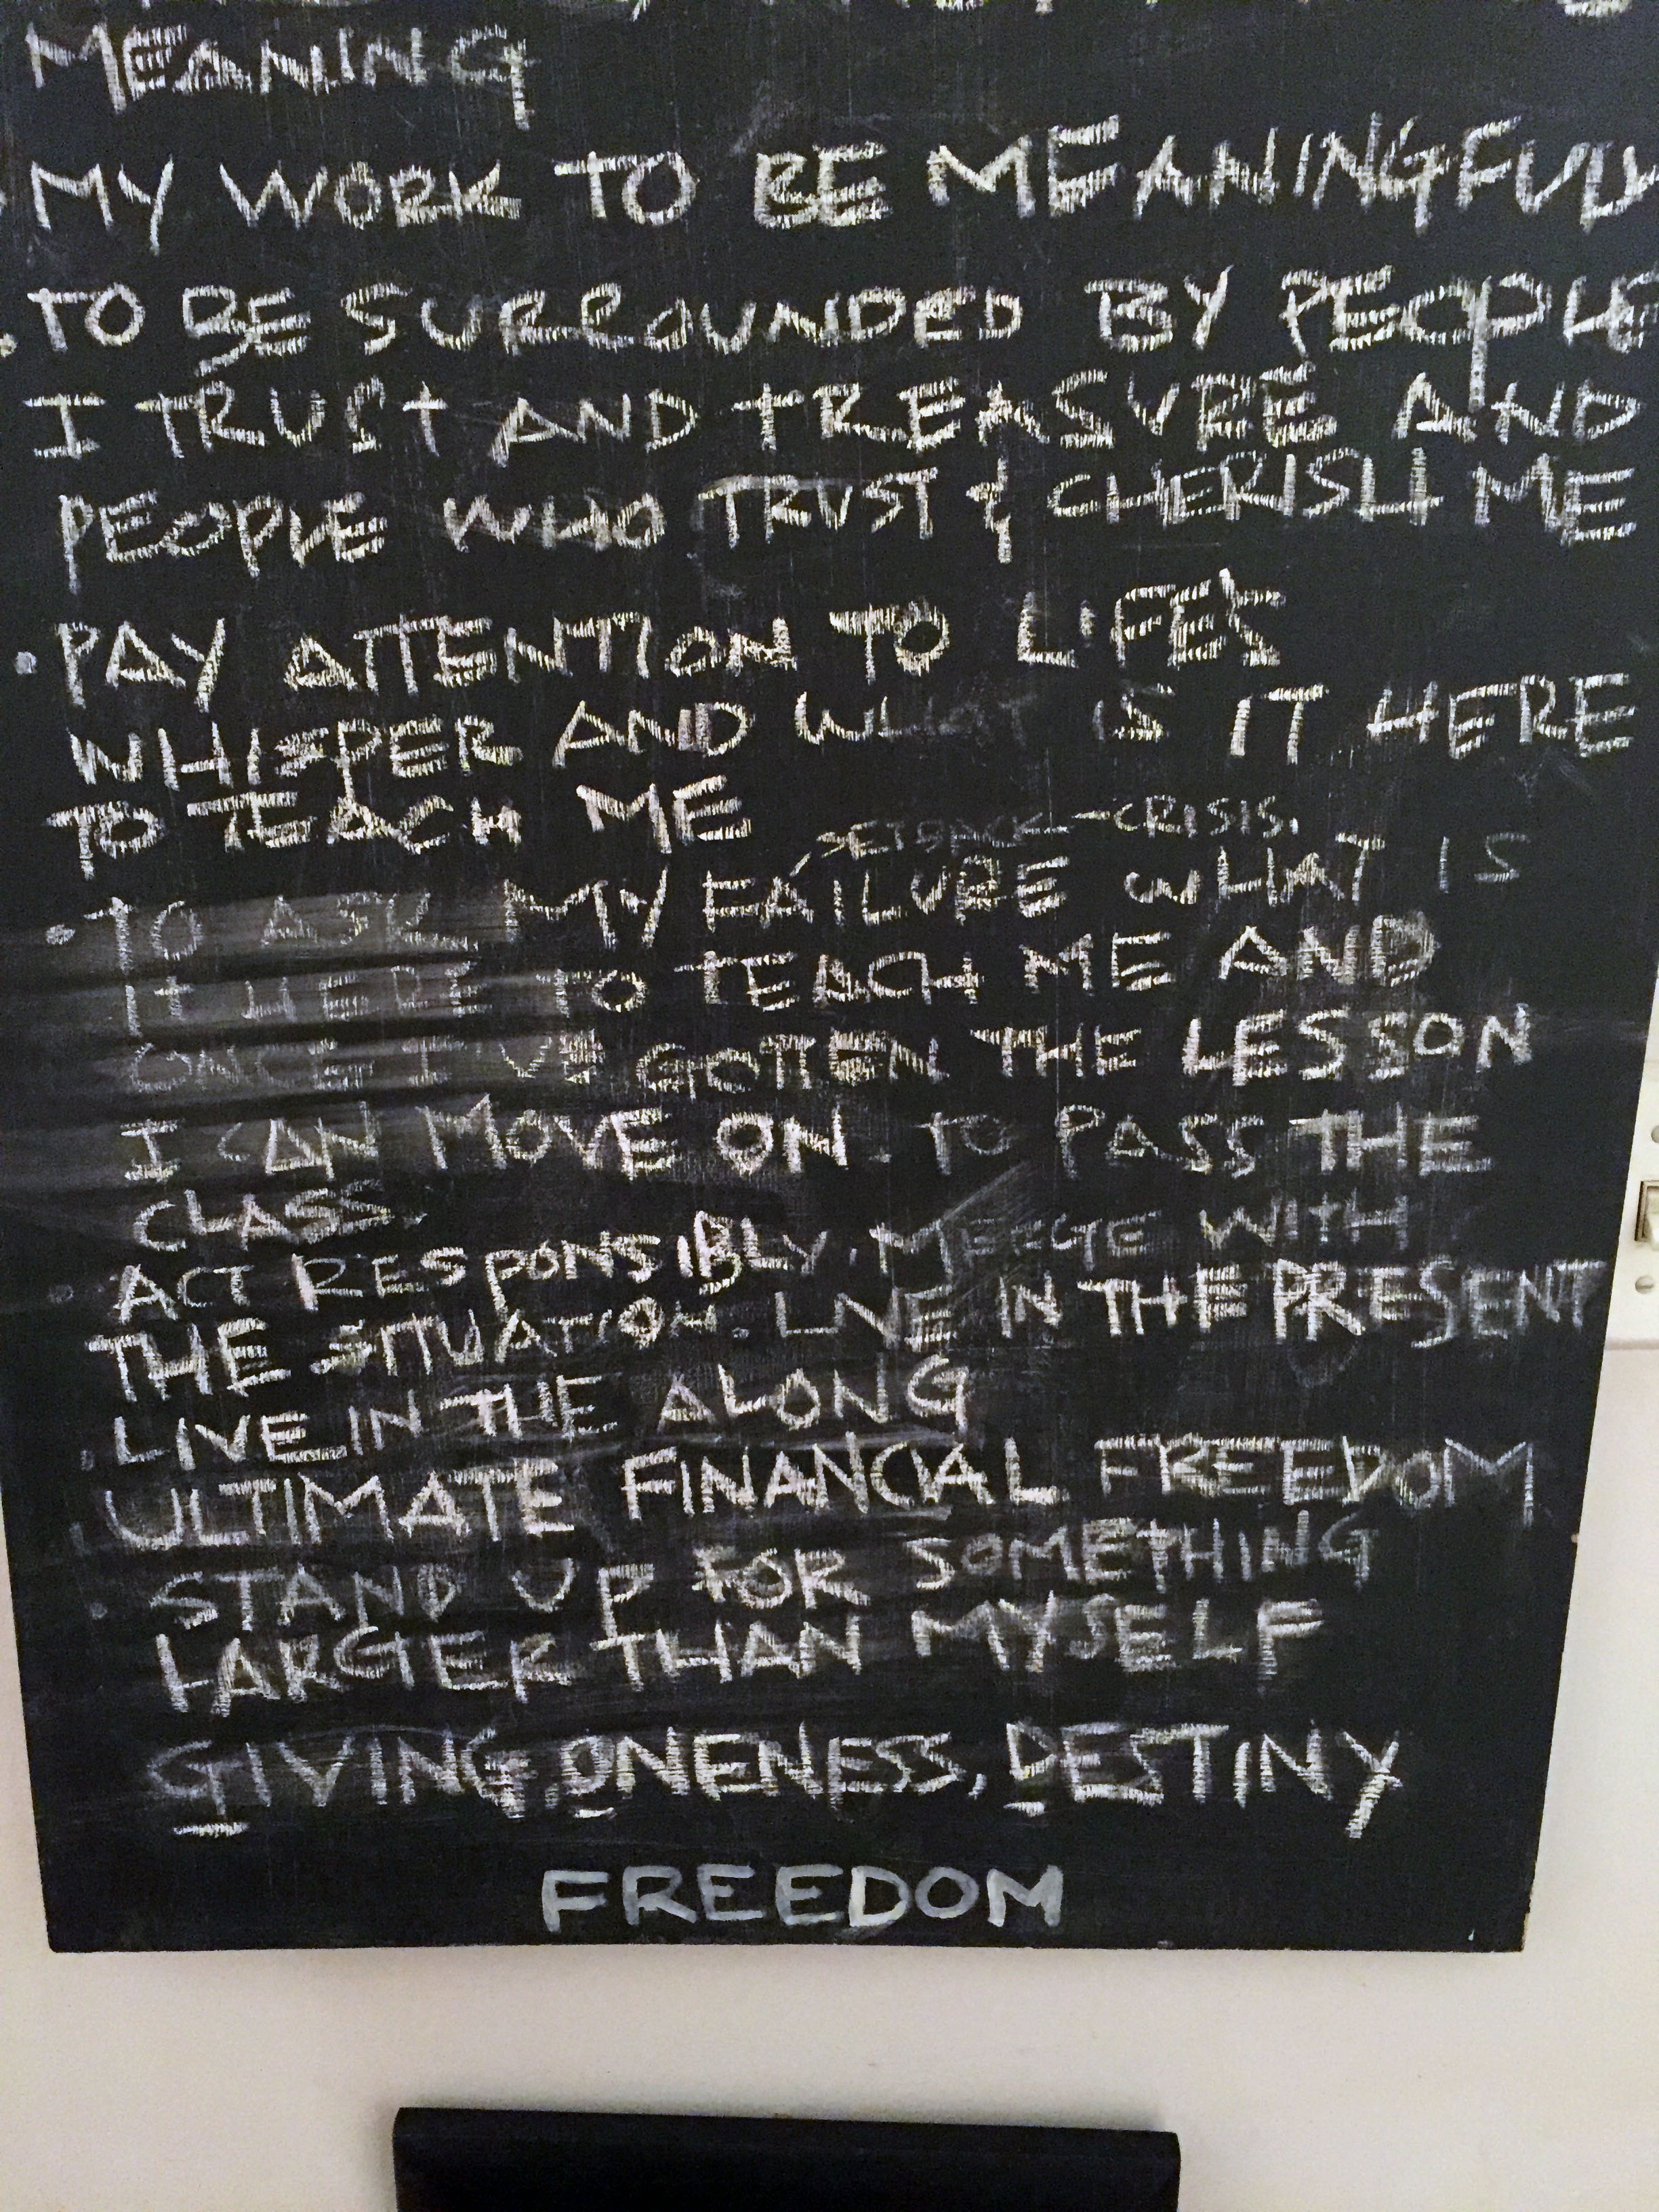 MEANING
• MY WORK TO BE MEANINGFUL
• TO BE SURROUNDED BY PEOPLE
I TRUST AND TREASURE AND
PEOPLE WHO TRUST & CHERISH ME
• PAY ATTENTION TO LIFES
WHISPER AND WHAT IS IT HERE
TO TEACH ME
-SETBACK -CRISIS.
• TO ASK MY FAILURE WHAT IS
IT HERE TO TEACH ME AND
ONCE I'VE GOTTEN THE LESSON
I CAN MOVE ON. TO PASS THE
CLASS.
• ACT RESPONSIBLY. MERGE WITH
THE SITUATION. LIVE IN THE PRESENT
• LIVE IN THE ALONG
• ULTIMATE FINANCIAL FREEDOM
• STAND UP FOR SOMETHING
LARGER THAN MYSELF
GIVING, ONENESS, DESTINY
FREEDOM